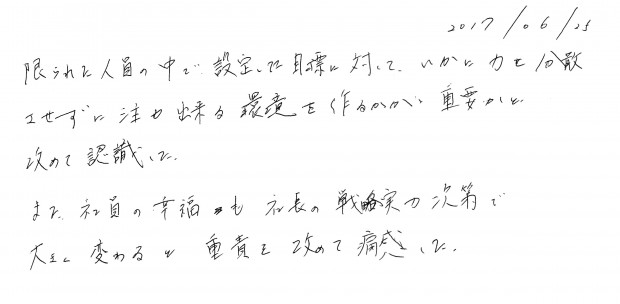 2017/06/25
限られた人員の中で設定した目標に対して、いかに力を分散
させずに注力出来る環境を作るかが、重要かと
改めて認識した。
また、社員の幸福も社長の戦略実力次第で
大きく変わると重責を改めて痛感した。